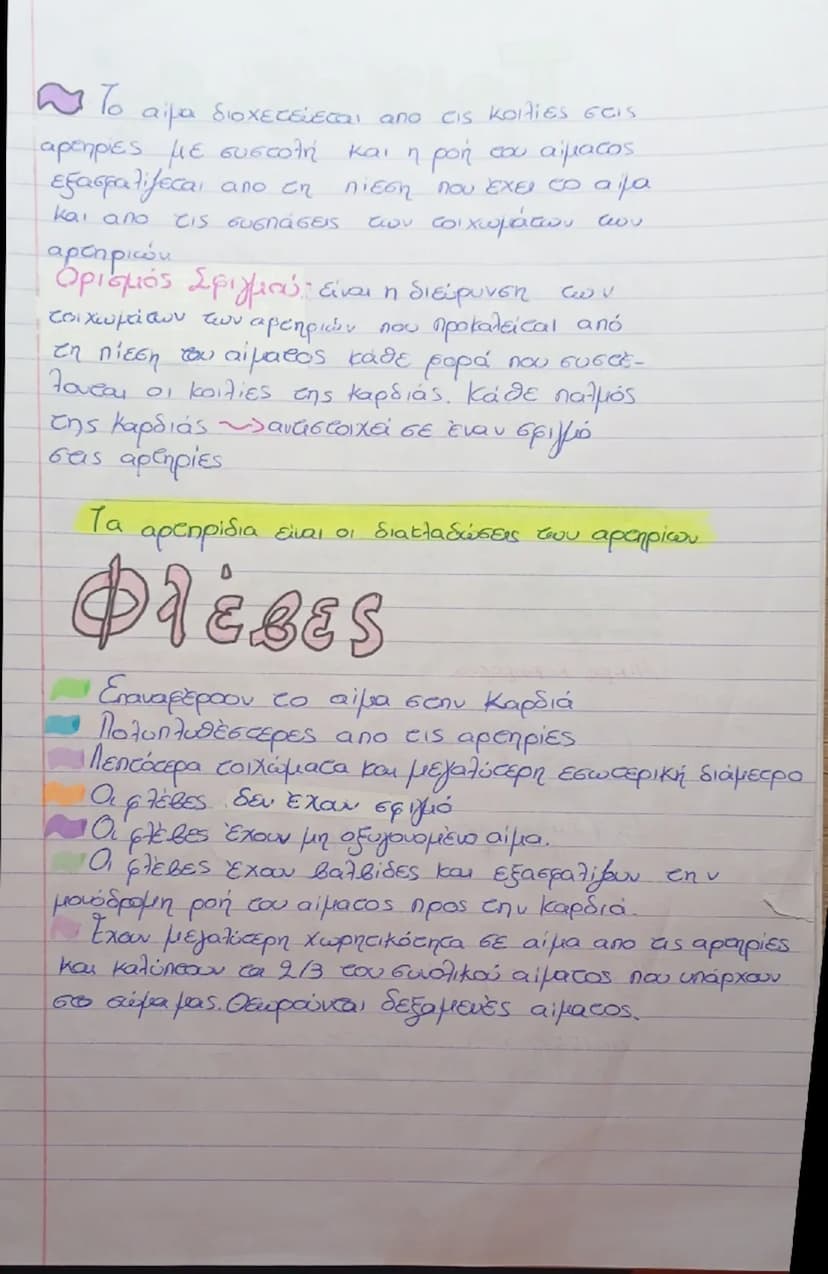 Το αίμα διοχετεύεται απο τις κοιλίες στις
αρτηρίες με συστολή και η ροή του αίματος
εξασφαλίζεται απο τη πίεση που έχει το αίμα
και απο τις συσπάσεις των τοιχωμάτων των
αρτηριών
Ορισμός Σφιγμού: είναι η διεύρυνση των
τοιχωμάτων των αρτηριών που προκαλείται από
τη πίεση του αίματος κάθε φορά που συστέ-
λονται οι κοιλίες της καρδιάς. Κάθε παλμός
της καρδιάς ~> αντιστοιχεί σε έναν σφιγμό
στις αρτηρίες
Τα αρτηρίδια είναι οι διακλαδώσεις των αρτηρίων
Φλέβες
Επαναφέρουν το αίμα στην καρδιά
Πολυπληθέστερες απο τις αρτηρίες
Λεπτότερα τοιχώματα και μεγαλύτερη εσωτερική διάμετρο
Οι φλέβες δεν έχουν σφιγμό
Οι φλέβες έχουν μη οξυγονομένο αίμα.
Οι φλέβες έχουν βαλβίδες και εξασφαλίζουν την
μονόδρομη ροή του αίματος προς την καρδιά.
Έχουν μεγαλύτερη χωρητικότητα σε αίμα απο τις αρτηρίες
και καλύπτουν τα 2/3 του συνολικού αίματος που υπάρχουν
στο σώμα μας. Θεωρούνται δεξαμενές αίματος.